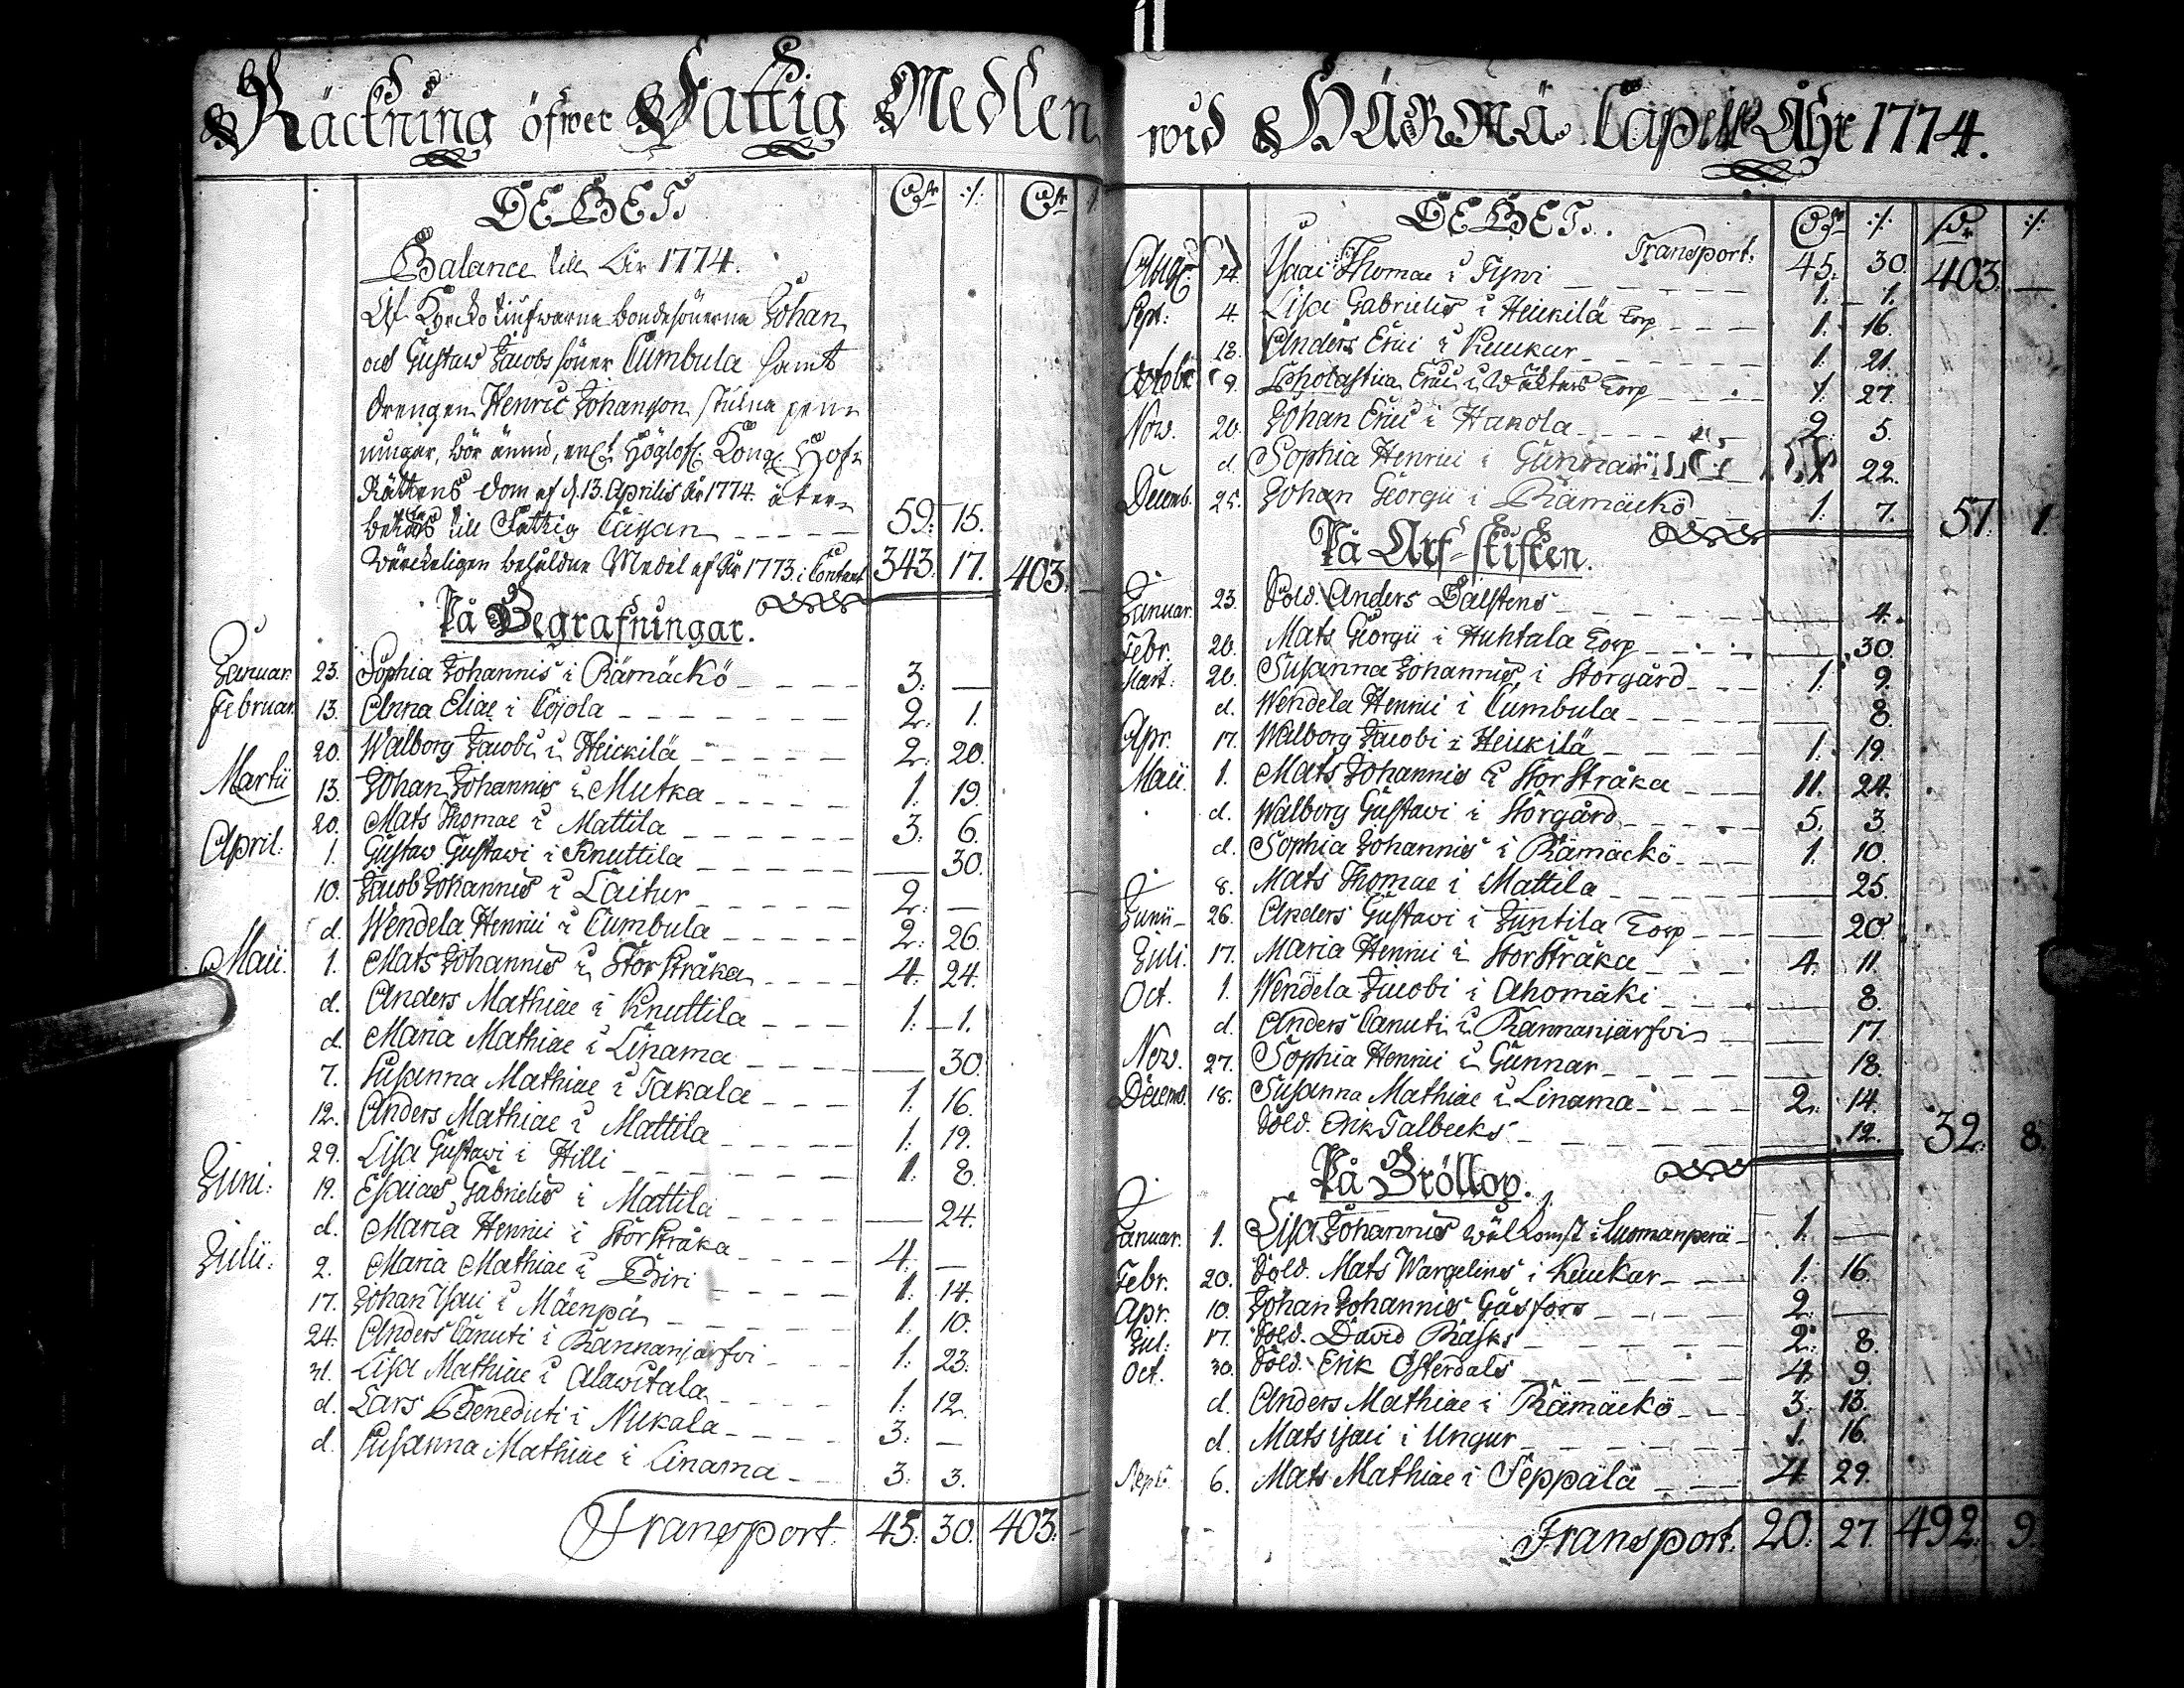 Räckning öfwer Fattig Medlen
DEBET. Dr :/. Dr
Balance till År 1774.
Af Kyrcko tiufwarna bondesönerna Johan
och Gustaw Jacobs söner Cumbula samt
drengen Henric Johansson stulna pen-
ningar, bör ännu, enl. Höglofl. Kongl. Hof-
Rättens dom af d. 13. Aprilis År 1774. åter-
till Fattig Cassan 59: 15.
Wärckeligen behåldne Medel af År 1773. i Contant 343: 17. 403: —
På Begrafningar.
Januar. 23. Sophia Johannis i Rämäckö 3: —
Februar. 13. Anna Eliae i Cojola 2: 1.
20. Walborg Jacobi i Heickilä 2: 20.
Martii 13. Johan Johannis i Mutka 1: 19.
20. Mats Thomae i Mattila 3: 6.
April: 1. Gustav Gustavi i Knuttila — 30.
10. Jacob Johannis i Laitur 2: —
d. Wendela Henrici i Cumbula 2: 26.
Maii. 1. Mats Johannis i Storstråka 4: 24.
d. Anders Mathiae i Knuttila 1: 1.
d. Maria Mathiae i Linama — 30.
7. Susanna Mathiae i Takala 1: 16.
12. Anders Mathiae i Mattila 1: 19.
29. Lisa Gustavi i Hilli 1: 8.
Juni: 19. Esaias Gabrielis i Mattila — 24.
d. Maria Henrici i Storstråka 4: —
Julii: 2. Maria Mathiae i Biri 1: 14.
17. Johan Isaci i Mäenpä 1: 10.
24. Anders Canuti i Rannanjärfvi 1: 23.
31. Lisa Mathiae i Alawitala 1: 12.
d. Lars Benedicti i Nickala 3: —
d. Susanna Mathiae i Linama 3: 3.
Transport. 45: 30. 403: —
wid HÄRMÄ Capell Åhr 1774.
DEBET. Dr :/. Dr :/.
Transport. 45: 30. 403. —
Aug. 14. Isaac Thomae i Tyni 1: 1.
Sept: 4. Lisa Gabrielis i Heickilä Torp 1: 16.
18. Anders Erici i Kuukar 1: 21.
Octobr. 9. Scholastica Erici i Torp 1: 27.
Nov. 20. Johan Erici i Hakola 2: 5.
d. Sophia Henrici i Gunnar 22.
Decemb. 25. Johan Georgii i Rämäckö 1: 7. 57: 1.
På Arf-skiften.
Januar. 23. Sold. Anders Galstens — 4.
Febr. 20. Mats Georgii i Huhtala Torp — 30.
Mart: 20. Susanna Johannis i Storgård 1: 9.
d. Wendela Henrici i Cumbula — 8.
Apr. 17. Walborg Jacobi i Heickilä 1: 19.
Maii. 1. Mats Johannis i Storstråka 11. 24.
d. Walborg Gustavi i Storgård 5. 3.
d. Sophia Johannis i Rämäckö 1: 10.
8. Mats Thomae i Mattila — 25.
Junii 26. Anders Gustavi i Juntila Torp — 20.
Juli. 17. Maria Henrici i Storstråka 4. 11.
Oct. 1. Wendela Jacobi i Ahomäki — 8.
d. Anders Canuti i Rannanjärfvi — 17.
Nov. 27. Sophia Henrici i Gunnar — 18.
Decemb. 18. Susanna Mathiae i Linama 2: 14.
Sold. Erik Talbecks — 12. 32: 8.
På Bröllop.
Januar. 1. Lisa Johannis wälkomst i Luomanperä 1. —
Febr. 20. Sold. Mats Wargelins i Kuukar 1: 16.
Apr. 10. Johan Johannis Gåsfors 2: —
Jul: 17. Sold. David Rasks 2: 8.
Oct. 30. Sold. Erik Österdals 4. 9.
d. Anders Mathiae i Rämäckö 3: 13.
d. Mats Isaci i Ungur 1. 16.
Sept: 6. Mats Mathiae i Seppälä 4. 29.
Transport. 20: 27. 492: 9.